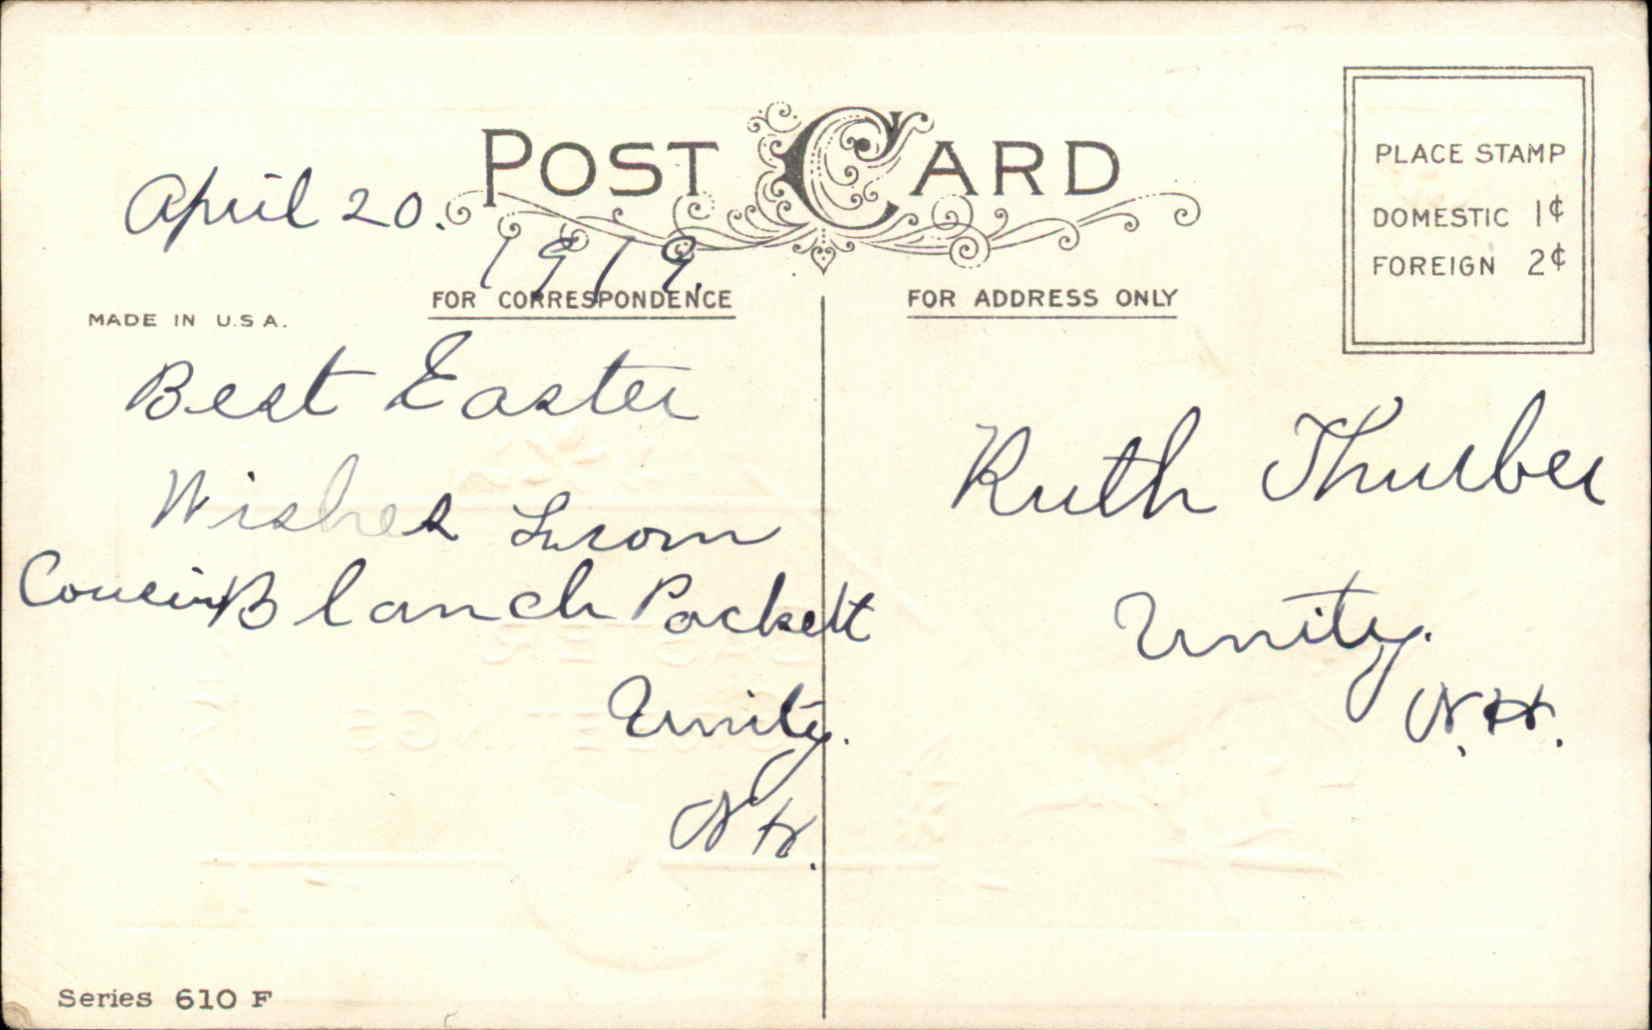 POST CARD
PLACE STAMP
DOMESTIC 1¢
FOREIGN 2¢
April 20.
1919.
FOR CORRESPONDENCE
FOR ADDRESS ONLY
MADE IN U.S A.
Best Easter
Wishes from
Cousin Blanch Packett
Unity.
N H.
Ruth Thurber
Unity.
N.H.
Series 610 F